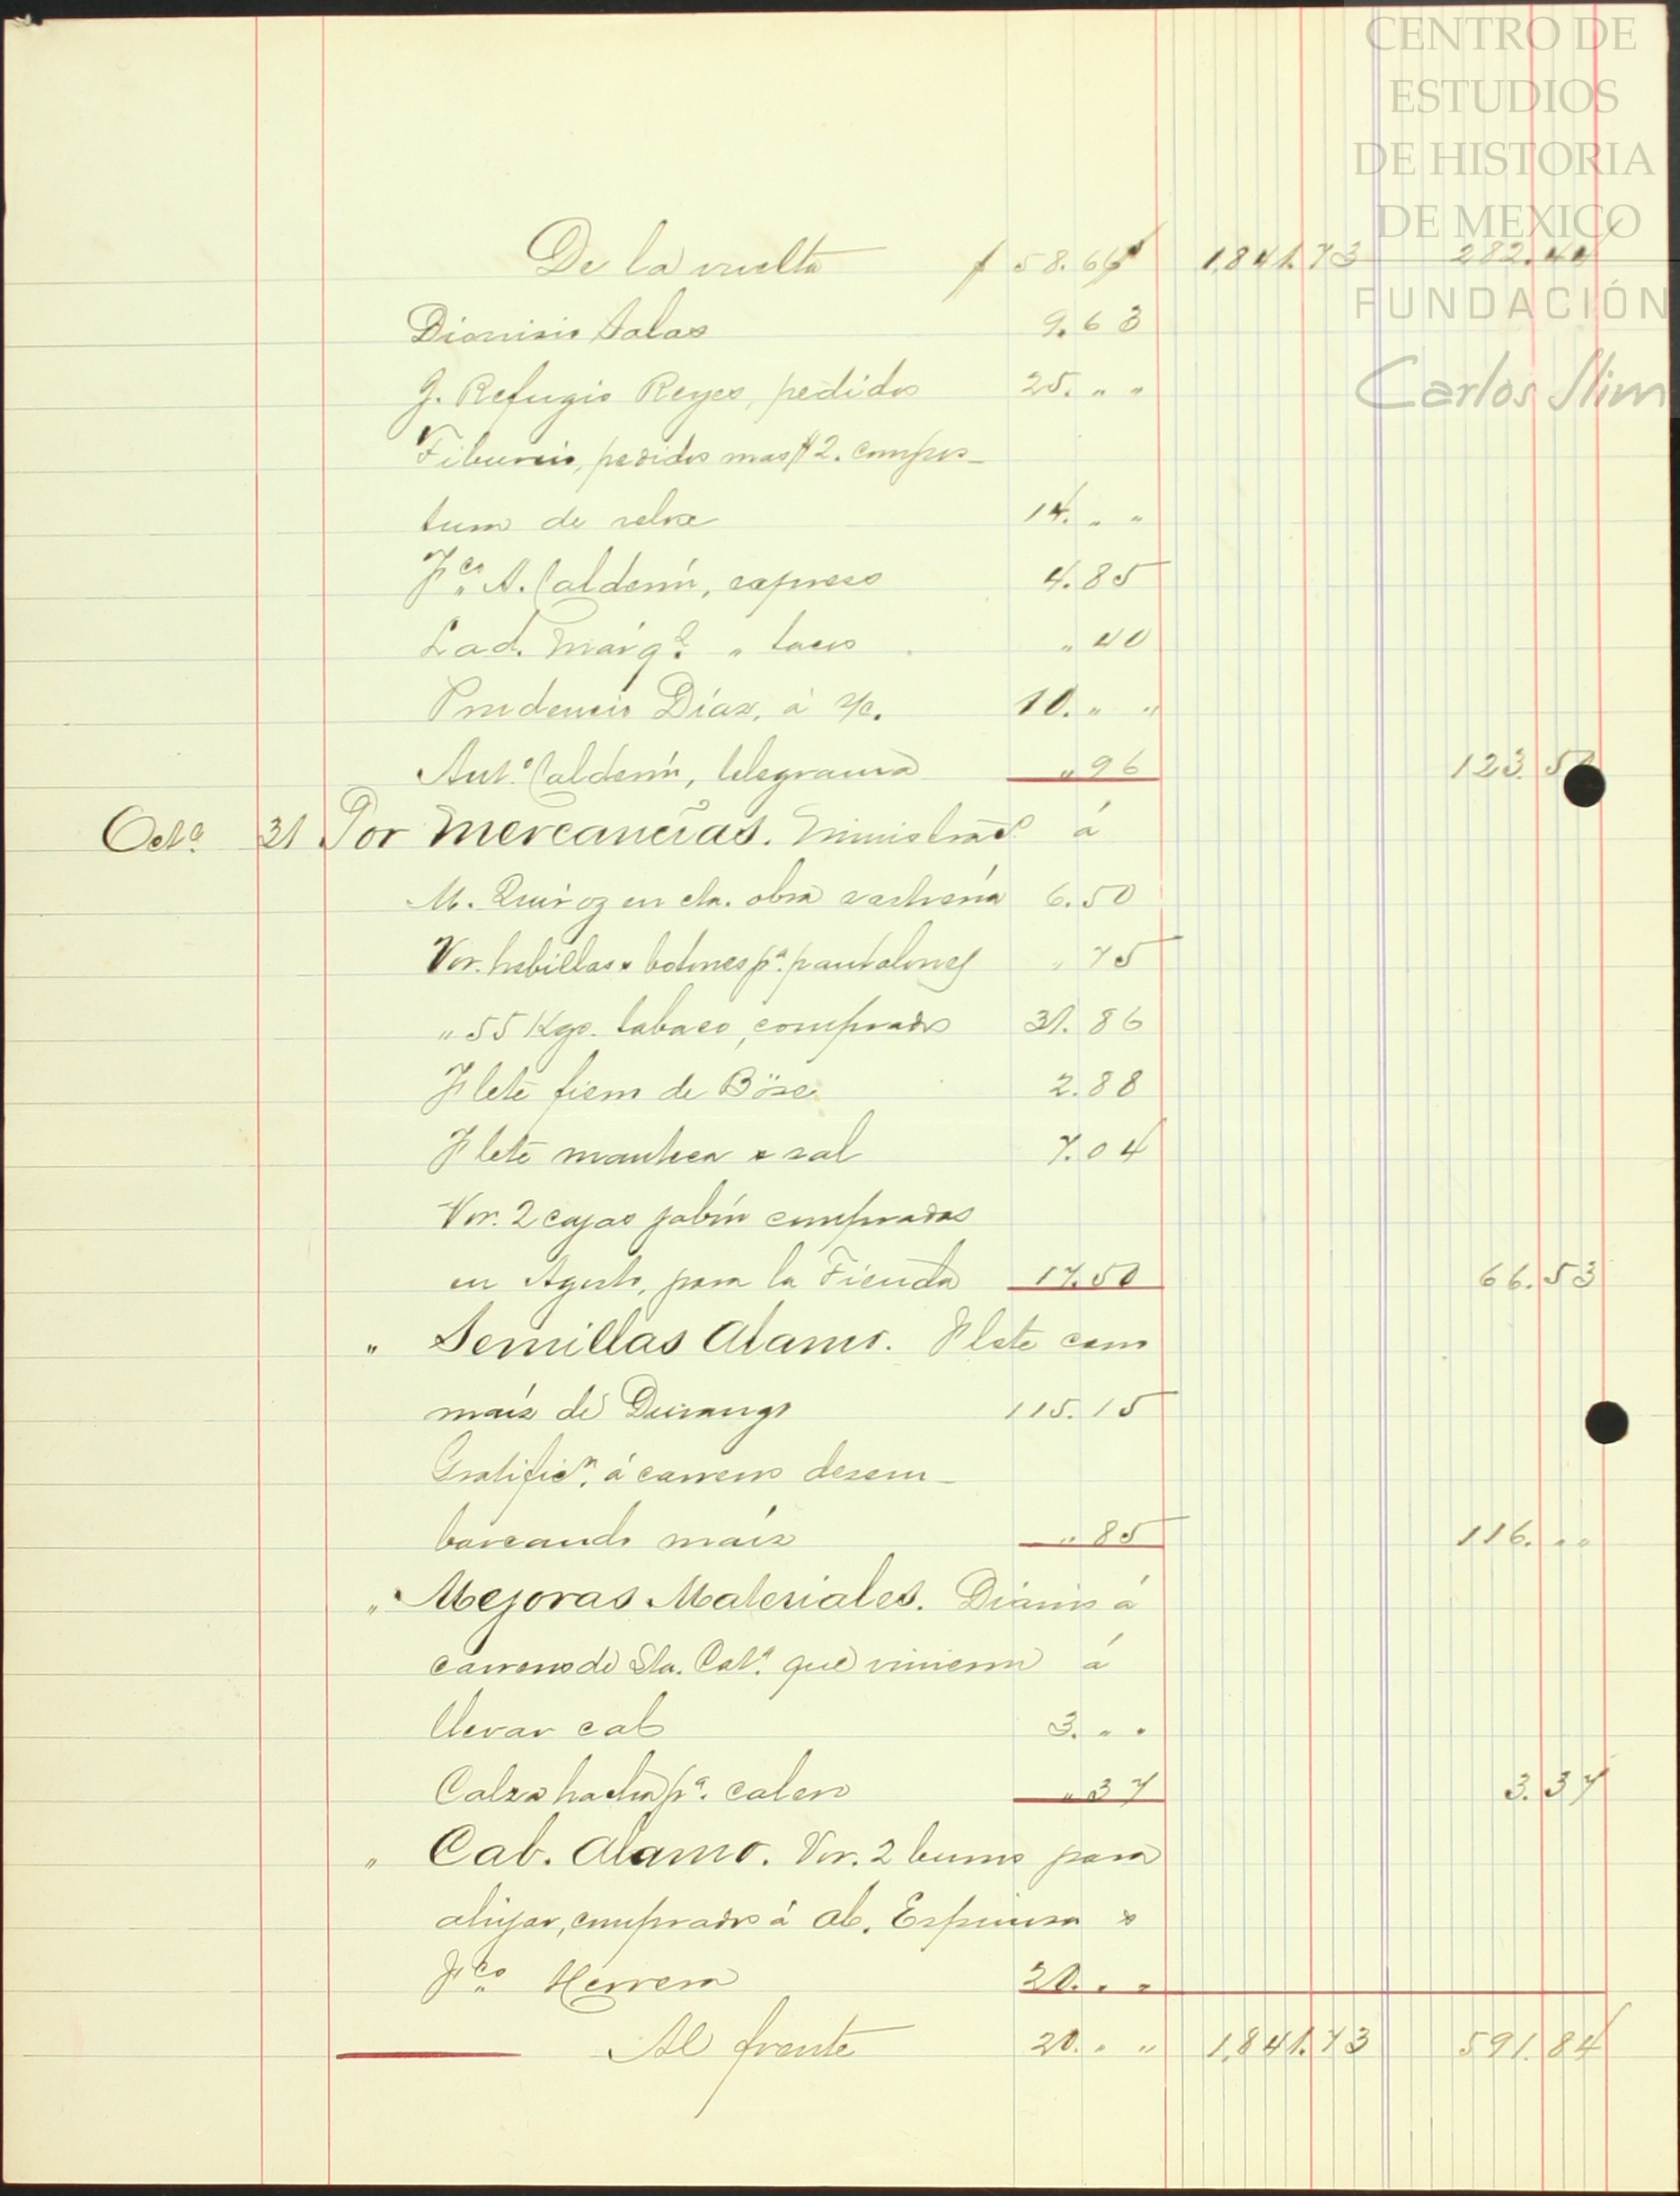 CENTRO DE
ESTUDIOS
DE HISTORIA
DE MEXICO
FUNDACIÓN
Carlos Slim
De la vuelta $ 58.66 1,841.73 282.44
Dionisio Salas 9.63
J. Refugio Reyes, pedidos 25. " "
Tiburcio, pedidos mas $2. compos-
tura de 14. " "
Fco. A. Calderón, expreso 4.85
Lad. Márqz. " " 40
Prudencio Díaz, á s/c. 10. " "
Anto. Calderón, telegrama " 96 123.50
Octe. 31 Por Mercancías. Ministrado á
M. Quiroz en cta. obra sastrería 6.50
Vor. hebillas y botones pa. pantalones " 75
" 55 Kgs. tabaco, comprado 31.86
Flete fierro de Böse 2.88
Flete manteca y sal 7.04
Vor. 2 cajas jabón compradas
en Agosto, para la Tienda 17.50 66.53
" Semillas Alamo. Flete carro
maíz de Durango 115.15
Gratificn. á carreros desem-
barcando maíz " 85 116. " "
" Mejoras Materiales. Diario á
carreros de Sta. Cata. que vinieron á
llevar cal 3. " "
Calza hacha pa. calero " 37 3.37
" Cab. Alamo. Vor. 2 burros para
ahijar, comprados á Ab. Espinosa y
Fco. Herrera 20. " "
Al frente 20. " " 1,841.73 591.84